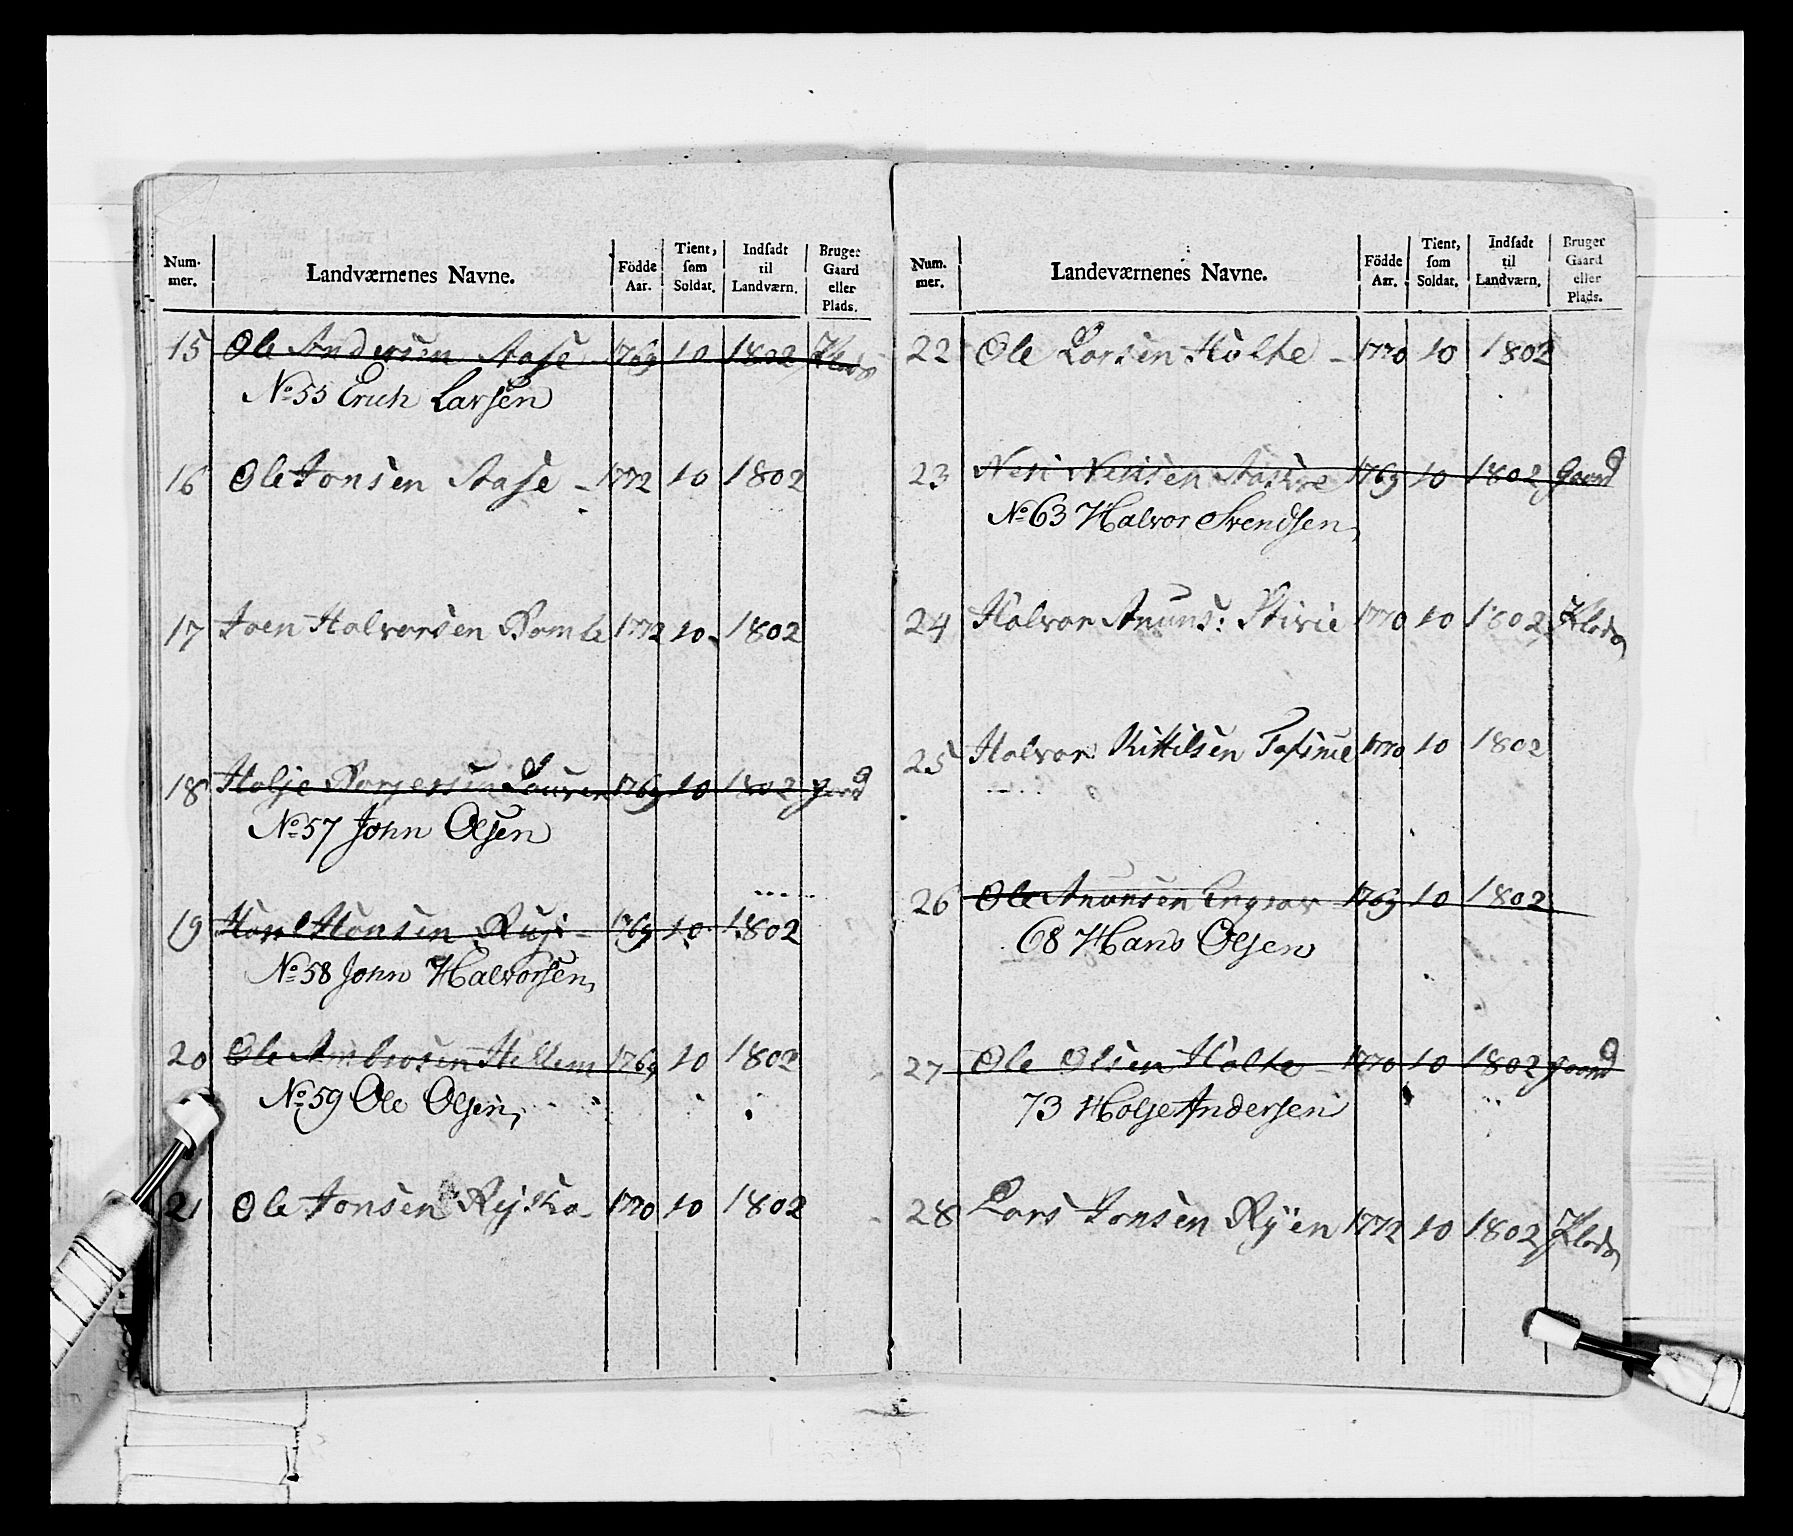 Num.
mer.
Landværnenes Navne.
Födde
Aar.
Tient,
som
Soldat.
Indsadt
til
Landværn.
Bruger
Gaard
eller
Plads.
15 Ole Andersen Aase 1769 10 1802 Plads
No 55 Erich Larsen
16 Ole Jonsen Aase - 1772 10 1802
17 Joen Halvorsen Bomle 1772 10 1802
18 Holje 1769 10 1802 gaard
No 57 John Olsen
19 Hansen 1769 10 1802
No 58 John Halvorsen,
20 Ole Ambrosen Hellem 1769 10 1802
No 59 Ole Olsen,
21 Ole Jonsen 1770 10 1802
Num.
mer.
Landeværnenes Navne.
Födde
Aar.
Tient,
som
Soldat.
Indsadt
til
Landværn.
Bruger
Gaard
eller
Plads.
22 Ole Larsen Holte - 1770 10 1802
23 Neri Nerisen 1769 10 1802 Gaard
No 63 Halvor Svendsen,
24 Halvor Anuns: 1770 10 1802 Plads
25 Halvor Kittilsen 1770 10 1802
26 Ole Anunsen 1769 10 1802
68 Hans Olsen
27 Ole Olsen Holte 1770 10 1802 gaard
73 Holje Andersen
28 Lars Jonsen Ryen 1772 10 1802 Plads